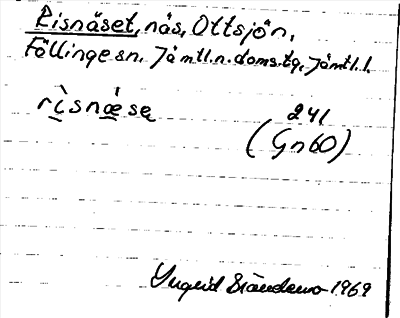 Risnäset, näs, Ottsjön,
Föllinge sn. Jämtl.n.doms.tg, Jämtl.l.
rìsnæ̀sə
241
(Gn60)
Yngrid 1969